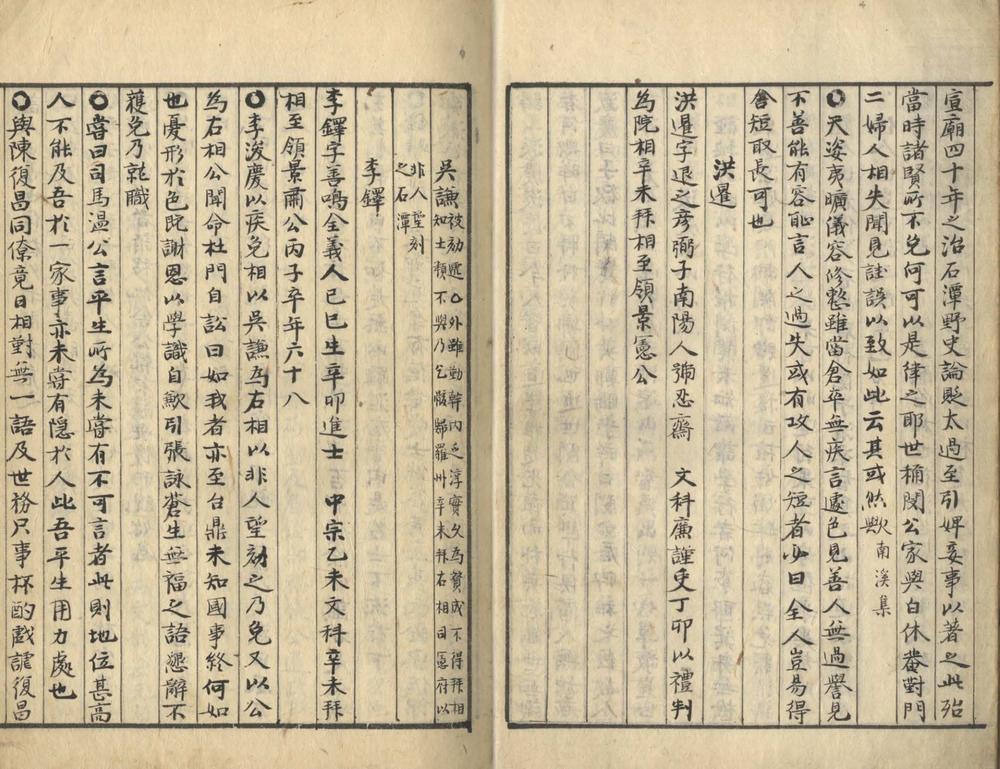 宣廟四十年之治石潭野史論貶太過至引婢妾事以著之此殆
當時諸賢所不免何可以是律之耶世稱閔公家與白休菴對門
二婦人相失聞見詿誤以致如此云其或然歟南溪集
天姿夷曠儀容修整雖當倉卒無疾言遽色見善人無過譽見
不善能有容耻言人之過失或有攻人之短者必曰全人豈易得
舍短取長可也
洪暹
洪暹字退之彦弼子南陽人號忍齋 文科廉謹吏丁卯以禮判
為院相辛未拜相至領景憲公
吳謙被劾遞外雖勤幹內乏淳實久為貳或不得拜相
知士類不與乃乞骸歸羅州辛未拜右相司區府以
非人望刻
之石潭
李鐸
李鐸字善鳴全義人己巳生辛卯進士 中宗乙未文科辛未拜
相至領景肅公丙子卒年六十八
李浚慶以疾免相以吳謙為右相以非人望劾之乃免又以公
為右相公聞命杜門自訟曰如我者亦至台鼎未知國事終何如
也憂形於色既謝恩以學識自歉引張詠蒼生無福之語懇辭不
獲免乃就職
嘗曰司馬溫公言平生所為未嘗有不可言者此則地位甚高
人不能及吾於一家事亦未嘗有隱於人此吾平生用力處也
與陳復昌同僚竟日相對無一語及世務只事杯酌戲謔復昌